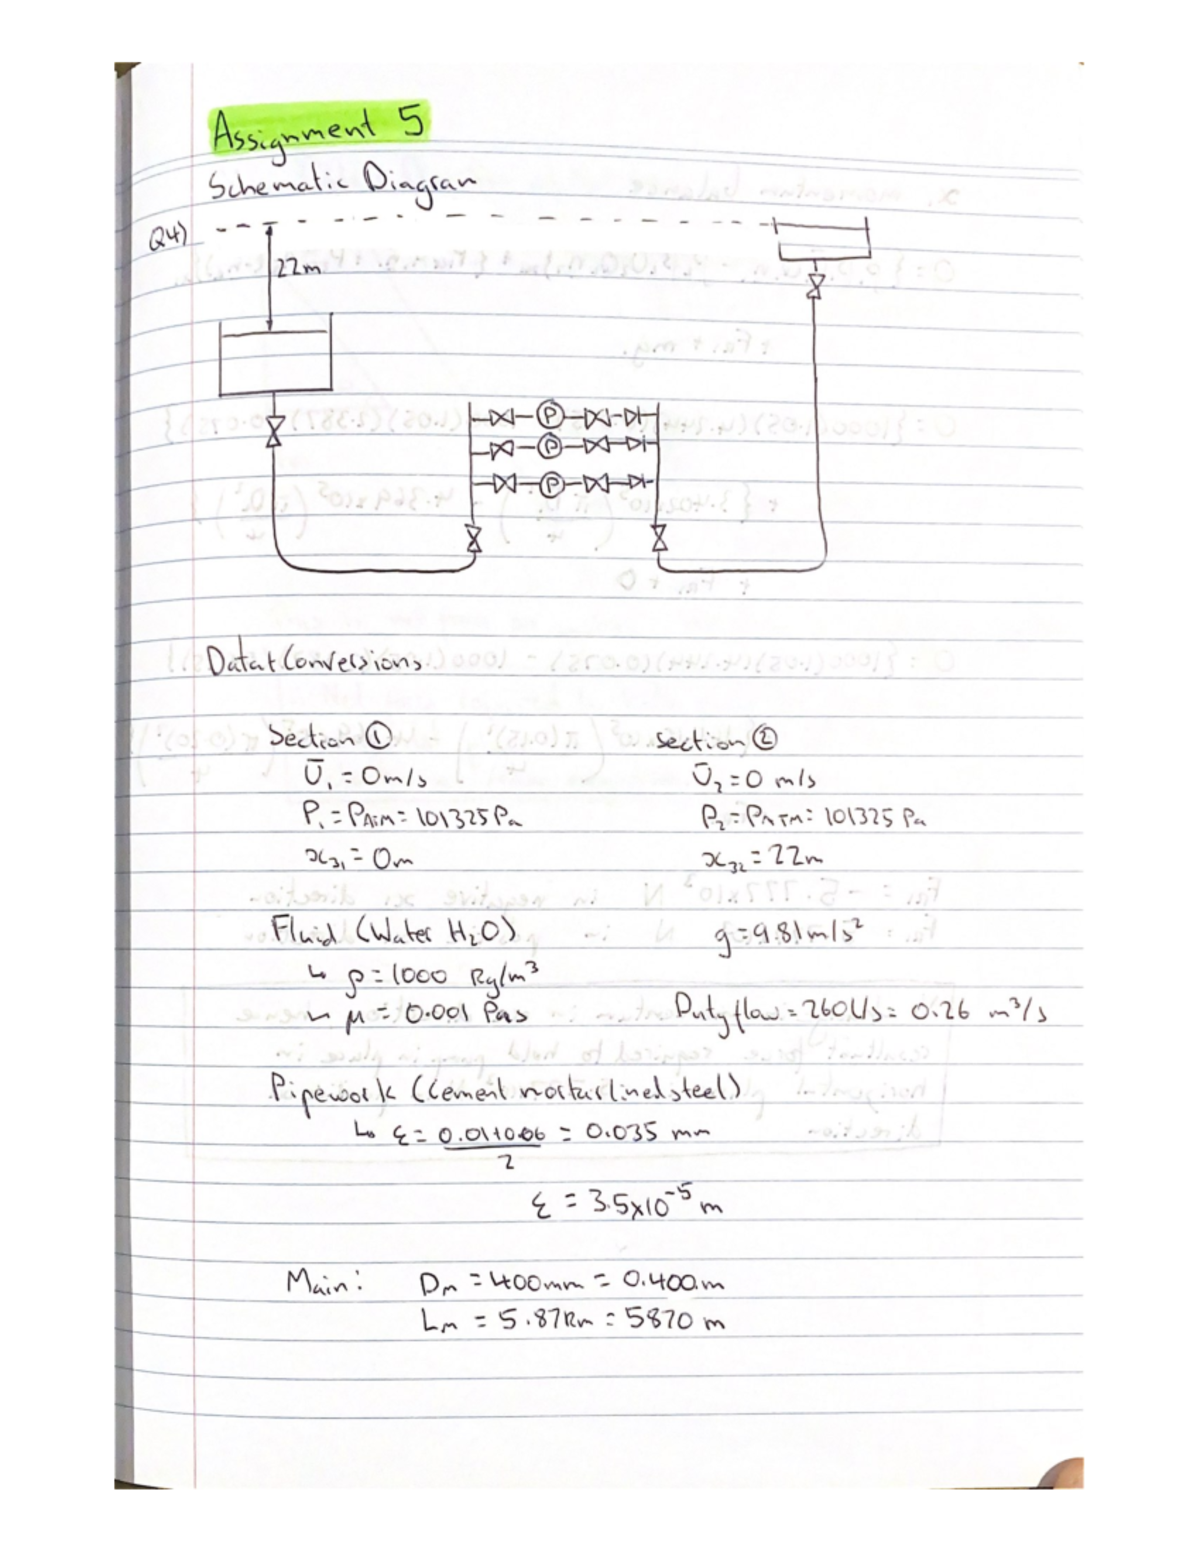 Assignment 5
Schematic Diagram
Q4)
22m
P
P
P
Data + Conversions
Section ①
Ū₁ = 0 m/s
P₁ = PATM = 101325 Pa
x₃₁ = 0m
section ②
Ū₂ = 0 m/s
P₂ = PATM = 101325 Pa
x₃₂ = 22m
Fluid (Water H₂O)
↳ ρ = 1000 kg/m³
↳ μ = 0.001 Pas
g = 9.81 m/s²
Duty flow = 260 L/s = 0.26 m³/s
Pipework (Cement mortar lined steel)
↳ ε = 0.01+0.06 = 0.035 mm
2
ε = 3.5x10⁻⁵ m
Main: Dm = 400mm = 0.400m
Lm = 5.87km = 5870 m